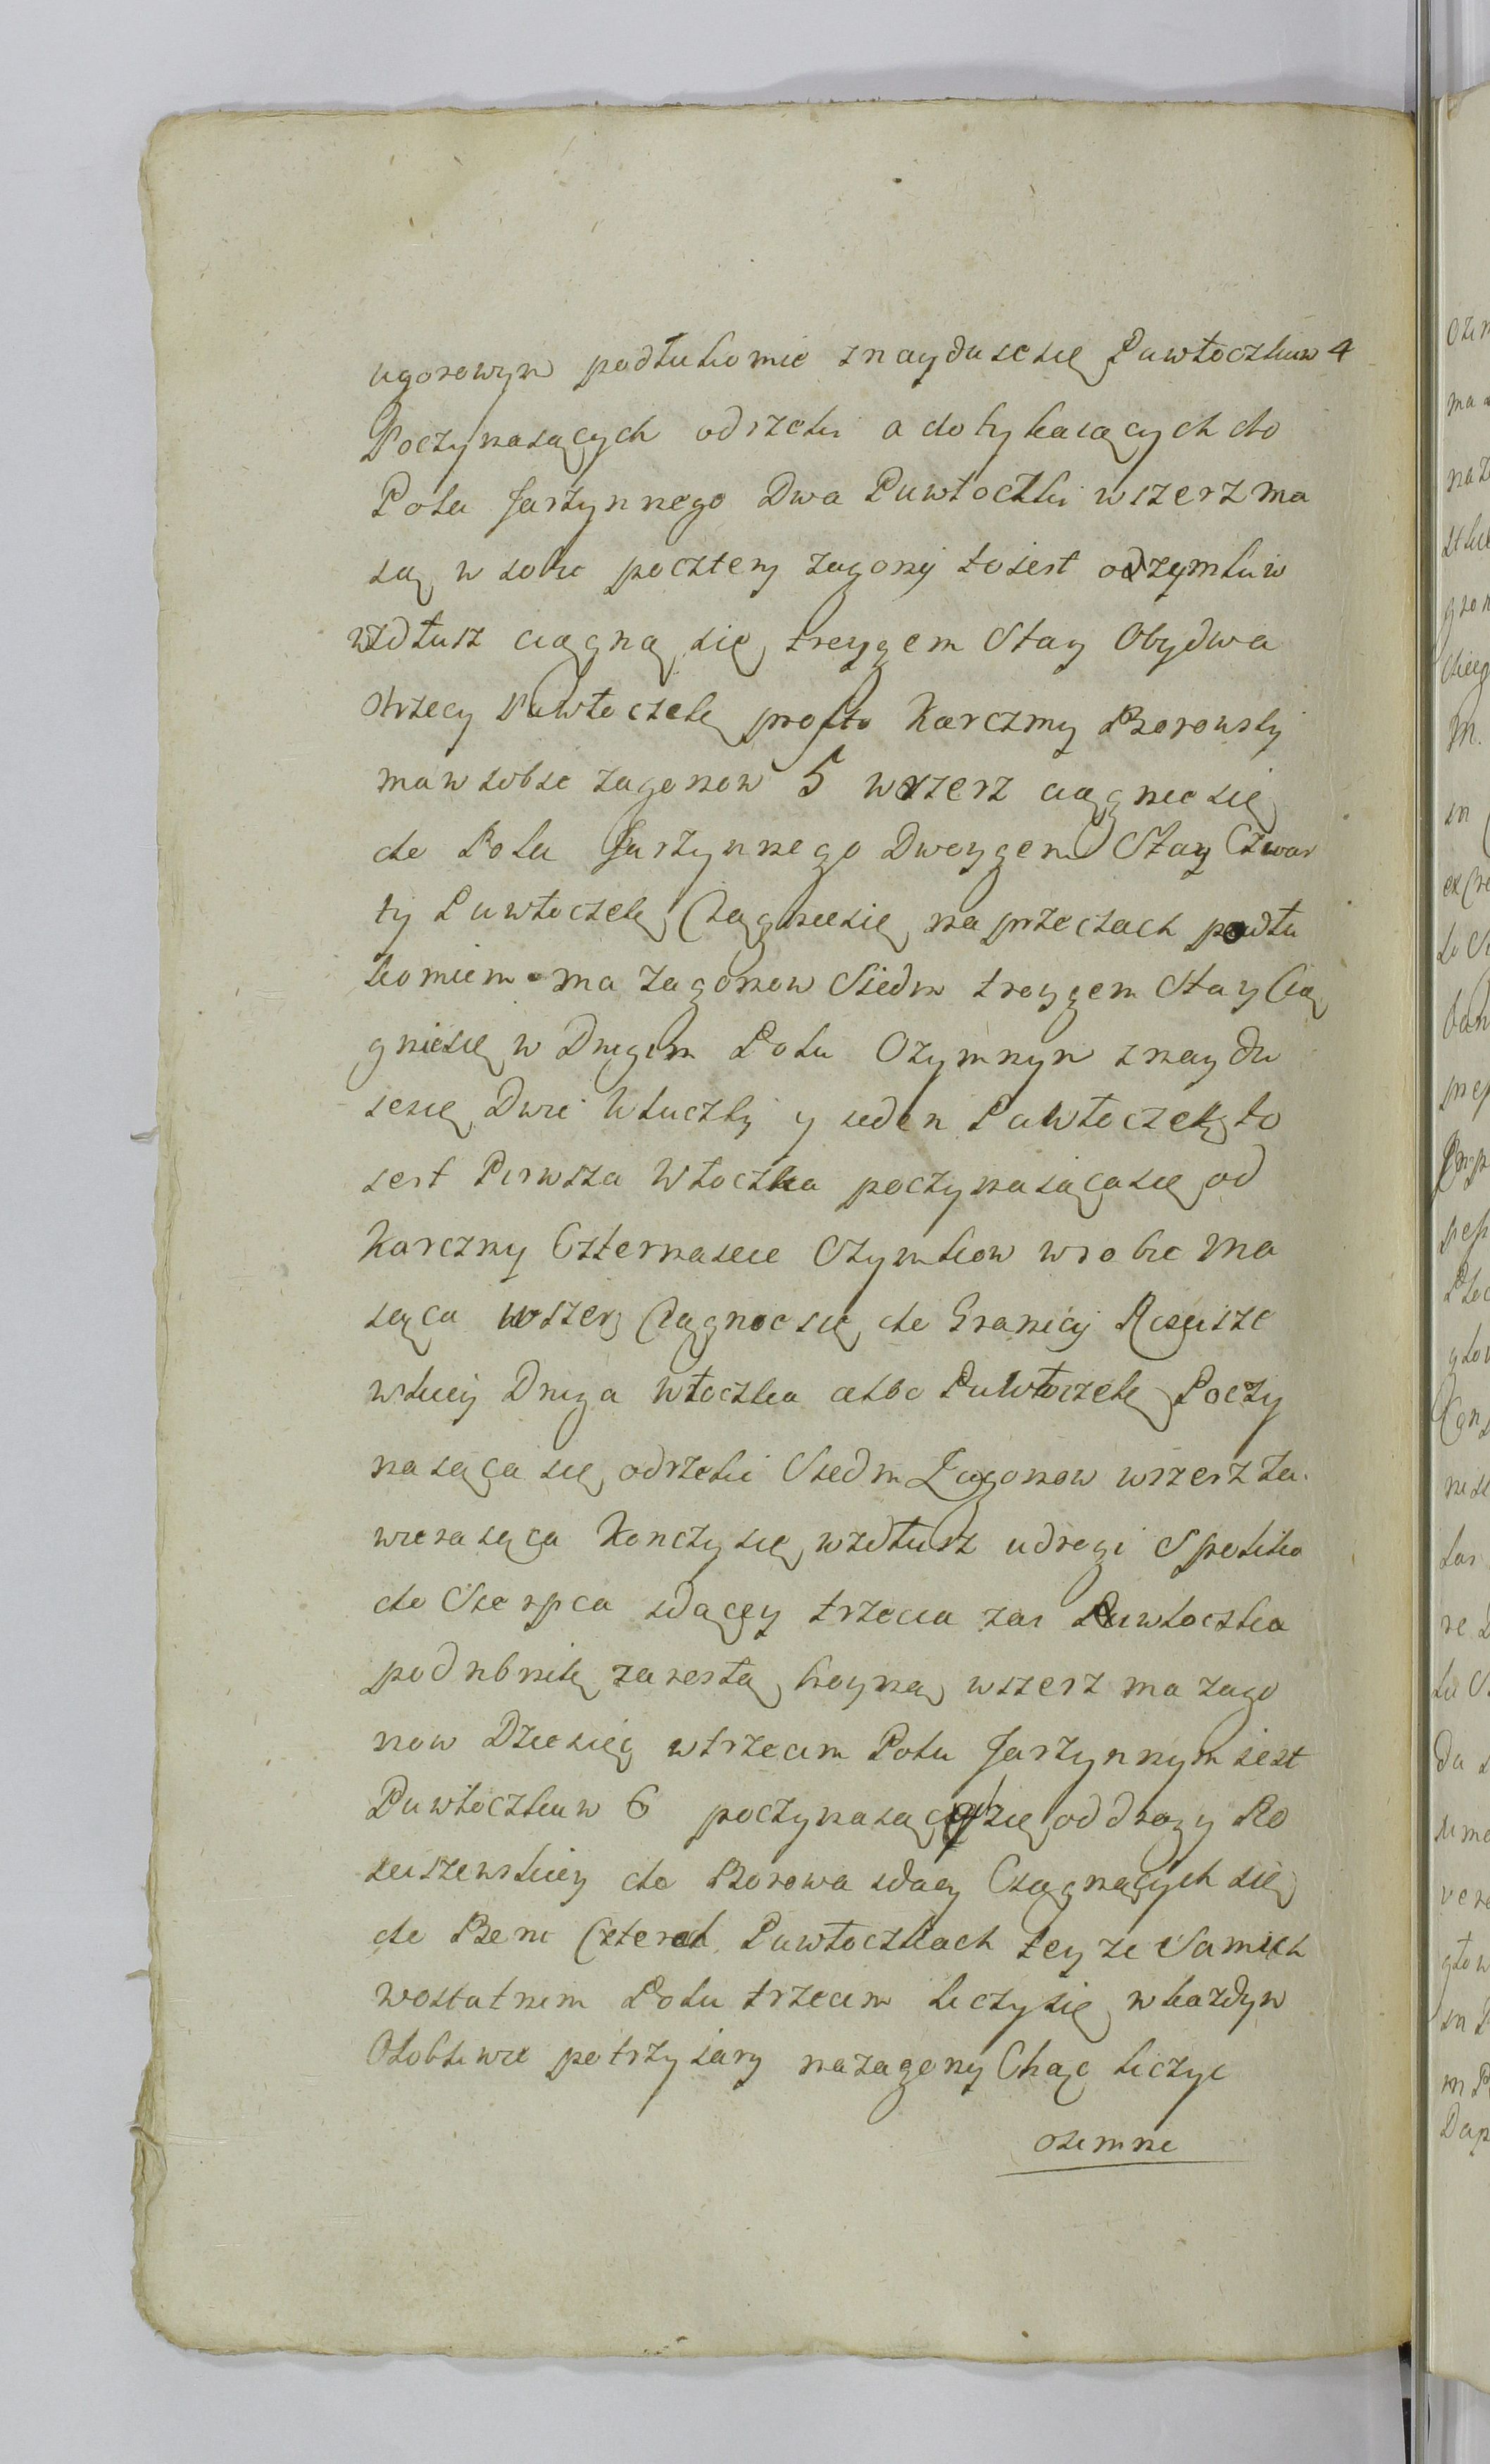 ugorowym podłukomie znayduie się Puwłoczkuw 4
Poczynaiących od rzeki a dotykaiących do
Pola Jarzynnego Dwa Puwłoczki wszerz ma
ią w sobie po cztery zagony to iest ozymkuw
wzdłusz ciągną się, treygem Stay Obydwa
trzecy Puwłoczek prosto Karczmy Borowsky
ma w sobie zagonow 5 wszerz ciągnie się
do Pola Jarzynnego Dwoygem Stay Czwar
ty Puwłoczek Ciągnie się na przeczach podłu
komiem ma zagonow Siedm troygem Stay Cią
gnie się w Drugim Polu Ozymnym znaydu
ie się Dwie Włuczky y ieden Puwłoczek to
iest Pirwsza Włoczka poczynaiąca się od
Karczmy Czternascie Ozymkow w sobie Ma
iąca wszerz Ciągnie się do Granicy Roscisze
wskiey Druga włoczka albo Puwłoczek Poczy
naiąca się od rzeki Siedm Zagonow wszerz za
wieraiąca Konczy się wzdłusz u drogi Spolska
do Sierpca idącey trzecia zas Puwłoczka
pod rubnik za resztą wszerz ma zago
now Dziesięc w trzecim Polu Jarzynnym iest
Puwłoczkuw 6 poczynaiących się od drogy Ro
sciszewskiey do Borowa idacy Ciągnących się
do Czterech Puwłoczkach teyze Samich
w ostatnim Polu trzecim liczy się w kazdym
Osobliwie po trzy iary na zagony Chąc liczyc
ozimne